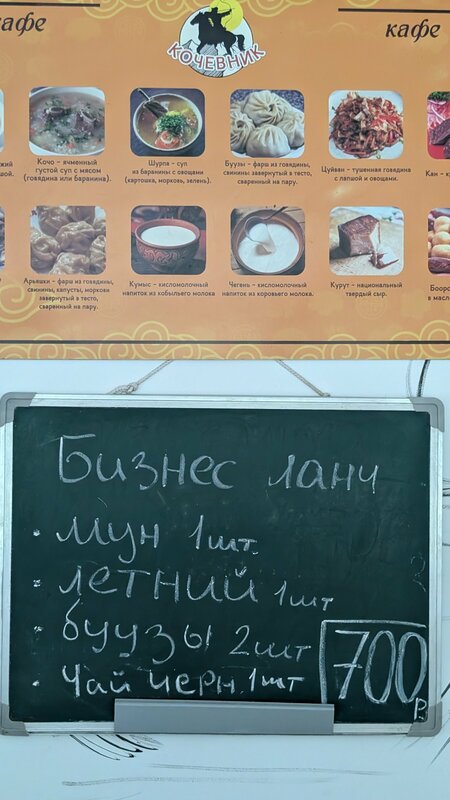 кафе
КОЧЕВНИК
кафе
Кочо – ячменный
густой суп с мясом
(говядина или баранина).
Шурпа – суп
из баранины с овощами
(картошка, морковь, зелень).
Буузы – фарш из говядины,
свинины завернутый в тесто,
сваренный на пару.
Цуйван – тушенная говядина
с лапшой и овощами.
Кан – к
Арьяшки – фарш из говядины,
свинины, капусты, моркови
завернутый в тесто,
сваренный на пару.
Кумыс – кисломолочный
напиток из кобыльего молока
Чегень – кисломолочный
напиток из коровьего молока.
Курут – национальный
твердый сыр.
Боорс
в масл
Бизнес ланч
• мун 1шт.
• летний 1шт
• буузы 2шт
• чай черн 1шт
700
р.